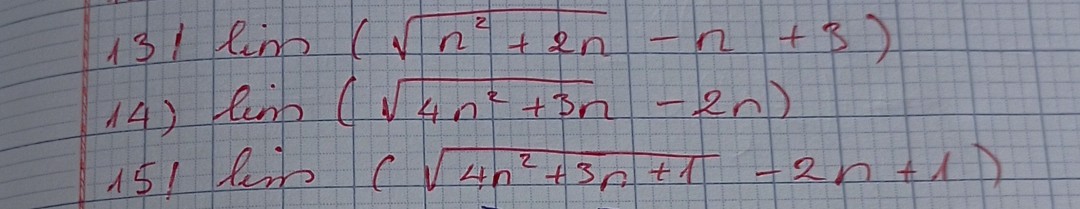 13) lim (√(n² + 2n) - n + 3)
14) lim (√(4n² + 3n) - 2n)
15) lim (√(4n² + 3n + 1) - 2n + 1)